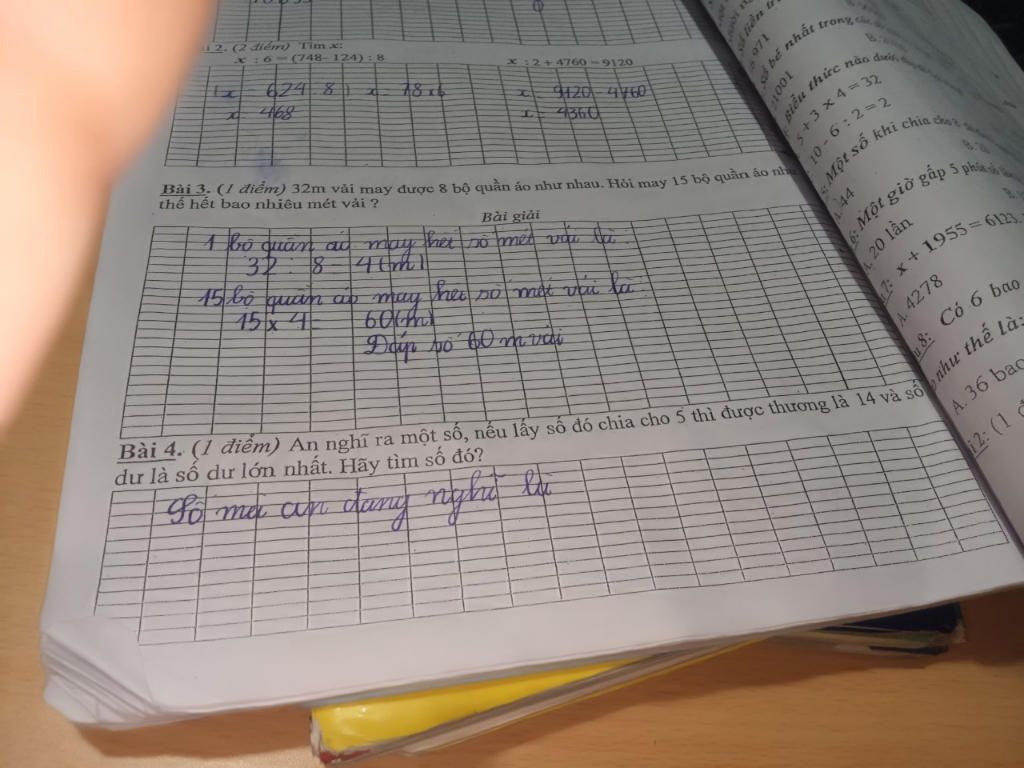 2. (2 điểm) Tìm x:
x : 6 = (748- 124) : 8
x : 2 + 4760 = 9120
x = 624 8 x = 78 x6
x = 468
x = 9120 4760
x = 4360
Bài 3. (1 điểm) 32m vải may được 8 bộ quần áo như nhau. Hỏi may 15 bộ quần áo như
thế hết bao nhiêu mét vải ?
Bài giải
1 bộ quần áo may hết số mét vải là
32 : 8 = 4 (m)
15 bộ quần áo may hết số mét vải là
15 x 4 = 60 (m)
Đáp số 60 m vải
Bài 4. (1 điểm) An nghĩ ra một số, nếu lấy số đó chia cho 5 thì được thương là 14 và số
dư là số dư lớn nhất. Hãy tìm số đó?
Số mà an đang nghĩ là
971
bé nhất trong các
21001
Biểu thức nào dưới
5 + 3 x 4 = 32
10 - 6 : 2 = 2
Một số khi chia cho 8
A. 144
6: Một giờ gấp 5 phút số lần
A. 20 lần
7: x + 1955 = 6123,
A. 4278
8: Có 6 bao
như thế là:
A. 36 bao
2: (1